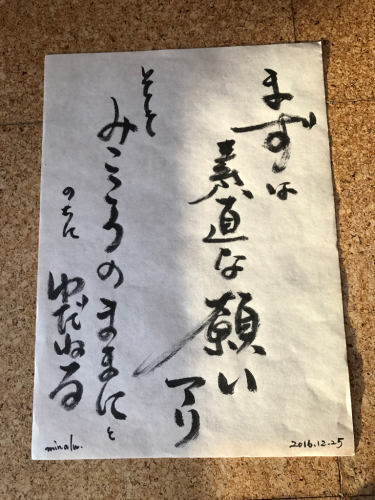 まずは
素直な願い
アリ
そして
みこころのままにと
のちに
ゆだねる
2016.12.25